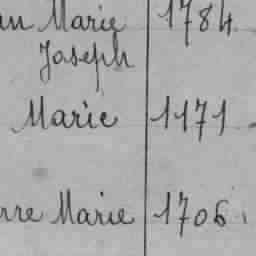 an Marie 1784.
Joseph
Marie 1171.
rre Marie 1706.